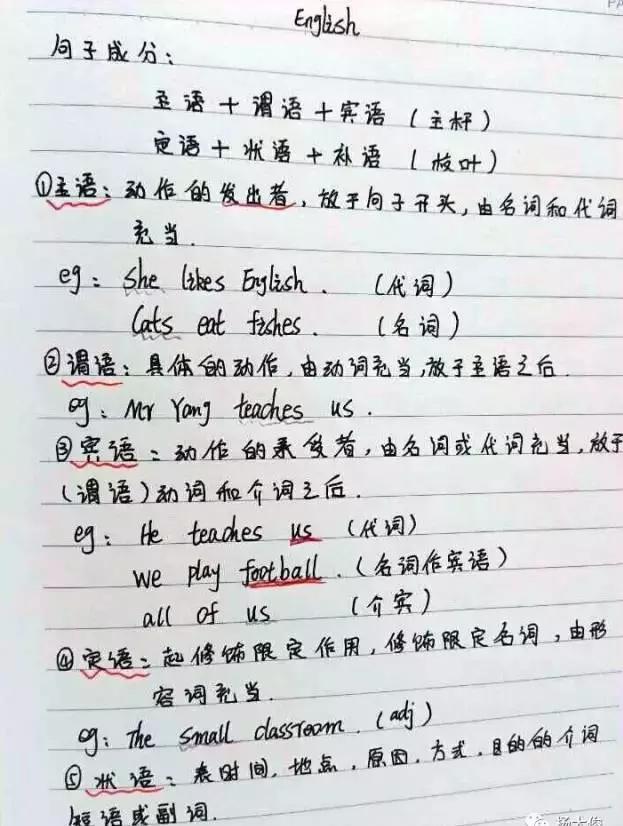 English
句子成分：
主语 + 谓语 + 宾语 (主杆)
定语 + 状语 + 补语 (枝叶)
①主语：动作的发出者，放于句子开头，由名词和代词
充当.
eg：She likes English. (代词)
Cats eat fishes. (名词)
②谓语：具体的动作，由动词充当，放于主语之后.
eg：Mr Yang teaches us.
③宾语：动作的承受者，由名词或代词充当，放于
(谓语)动词和介词之后.
eg：He teaches us (代词)
we play football. (名词作宾语)
all of us (介宾)
④定语：起修饰限定作用，修饰限定名词，由形
容词充当.
eg：The small classroom. (adj)
⑤状语：表时间，地点，原因，方式，目的的介词
短语或副词.